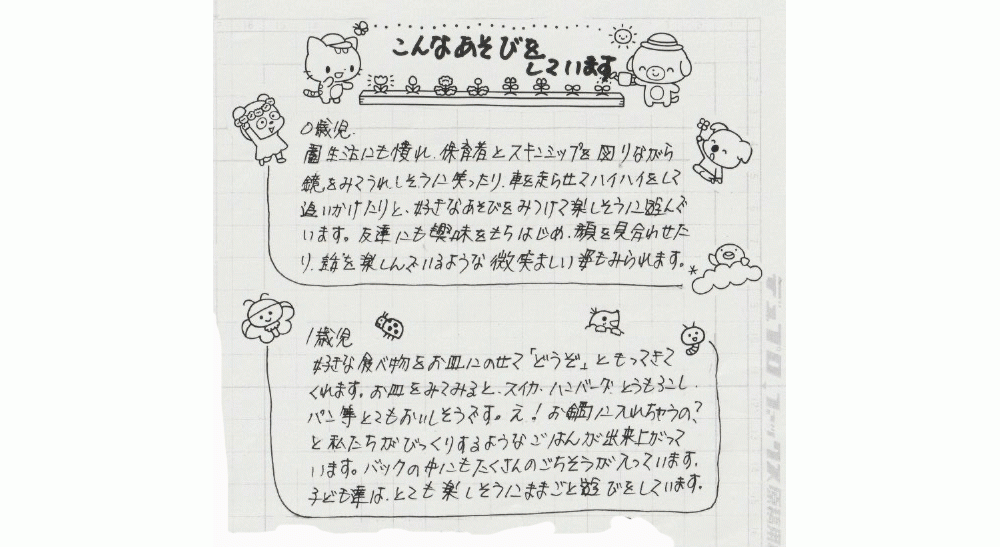 こんなあそびを
しています
0歳児.
園生活にも慣れ、保育者とスキンシップを図りながら
鏡をみてうれしそうに笑ったり、車を走らせてハイハイをして
追いかけたりと、好きなあそびをみつけて楽しそうに遊んで
います。友達にも興味をもちはじめ、顔を見合わせた
り、話を楽しんでいるような微笑ましい姿もみられます。
1歳児
好きな食べ物をお皿にのせて「どうぞ」ともってきて
くれます。お皿をみてみると、スイカ、ハンバーグ、とうもろこし、
パン等とてもおいしそうです。え!お鍋に入れちゃうの?
と私たちがびっくりするようなごはんが出来上がって
います。バックの中にもたくさんのごちそうが入っています。
子ども達は、とても楽しそうにままごと遊びをしています。